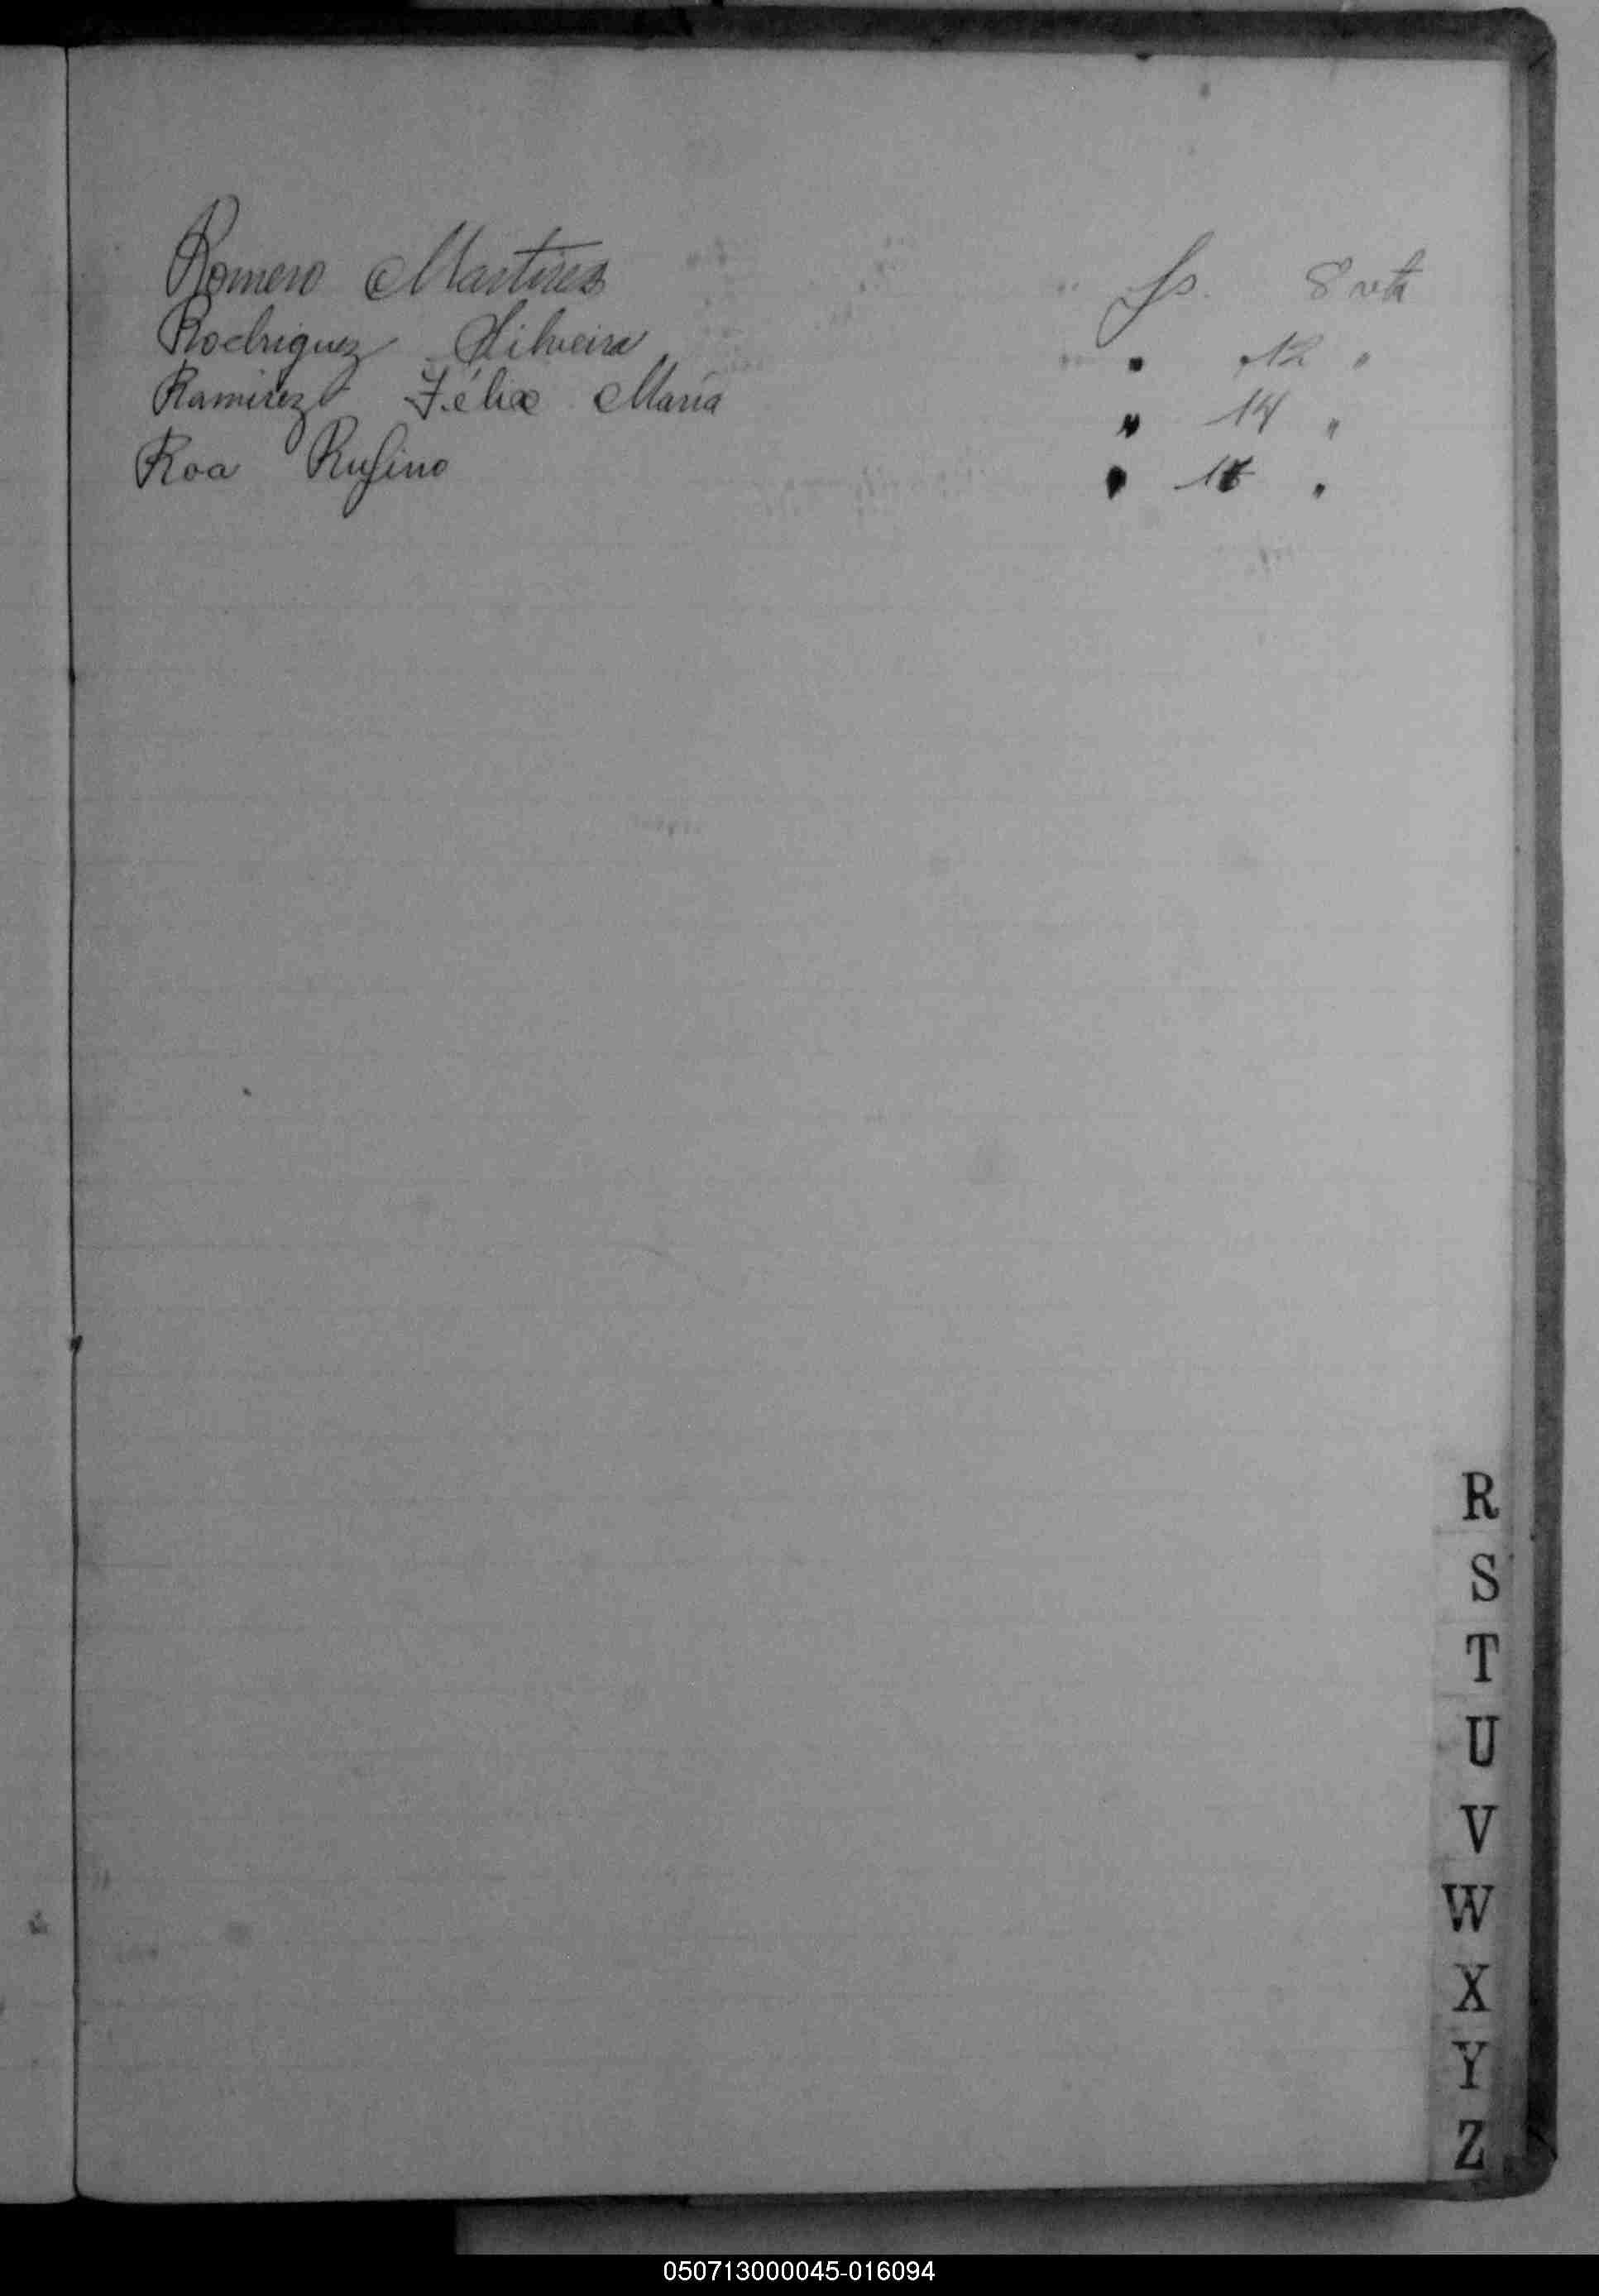 Romero Martires fs. 8 vta
Rodriguez Silveira " 12 "
Ramirez Félix María " 14 "
Roa Rufino " 16 "
R
S
T
U
V
W
X
Y
Z
050713000045-016094